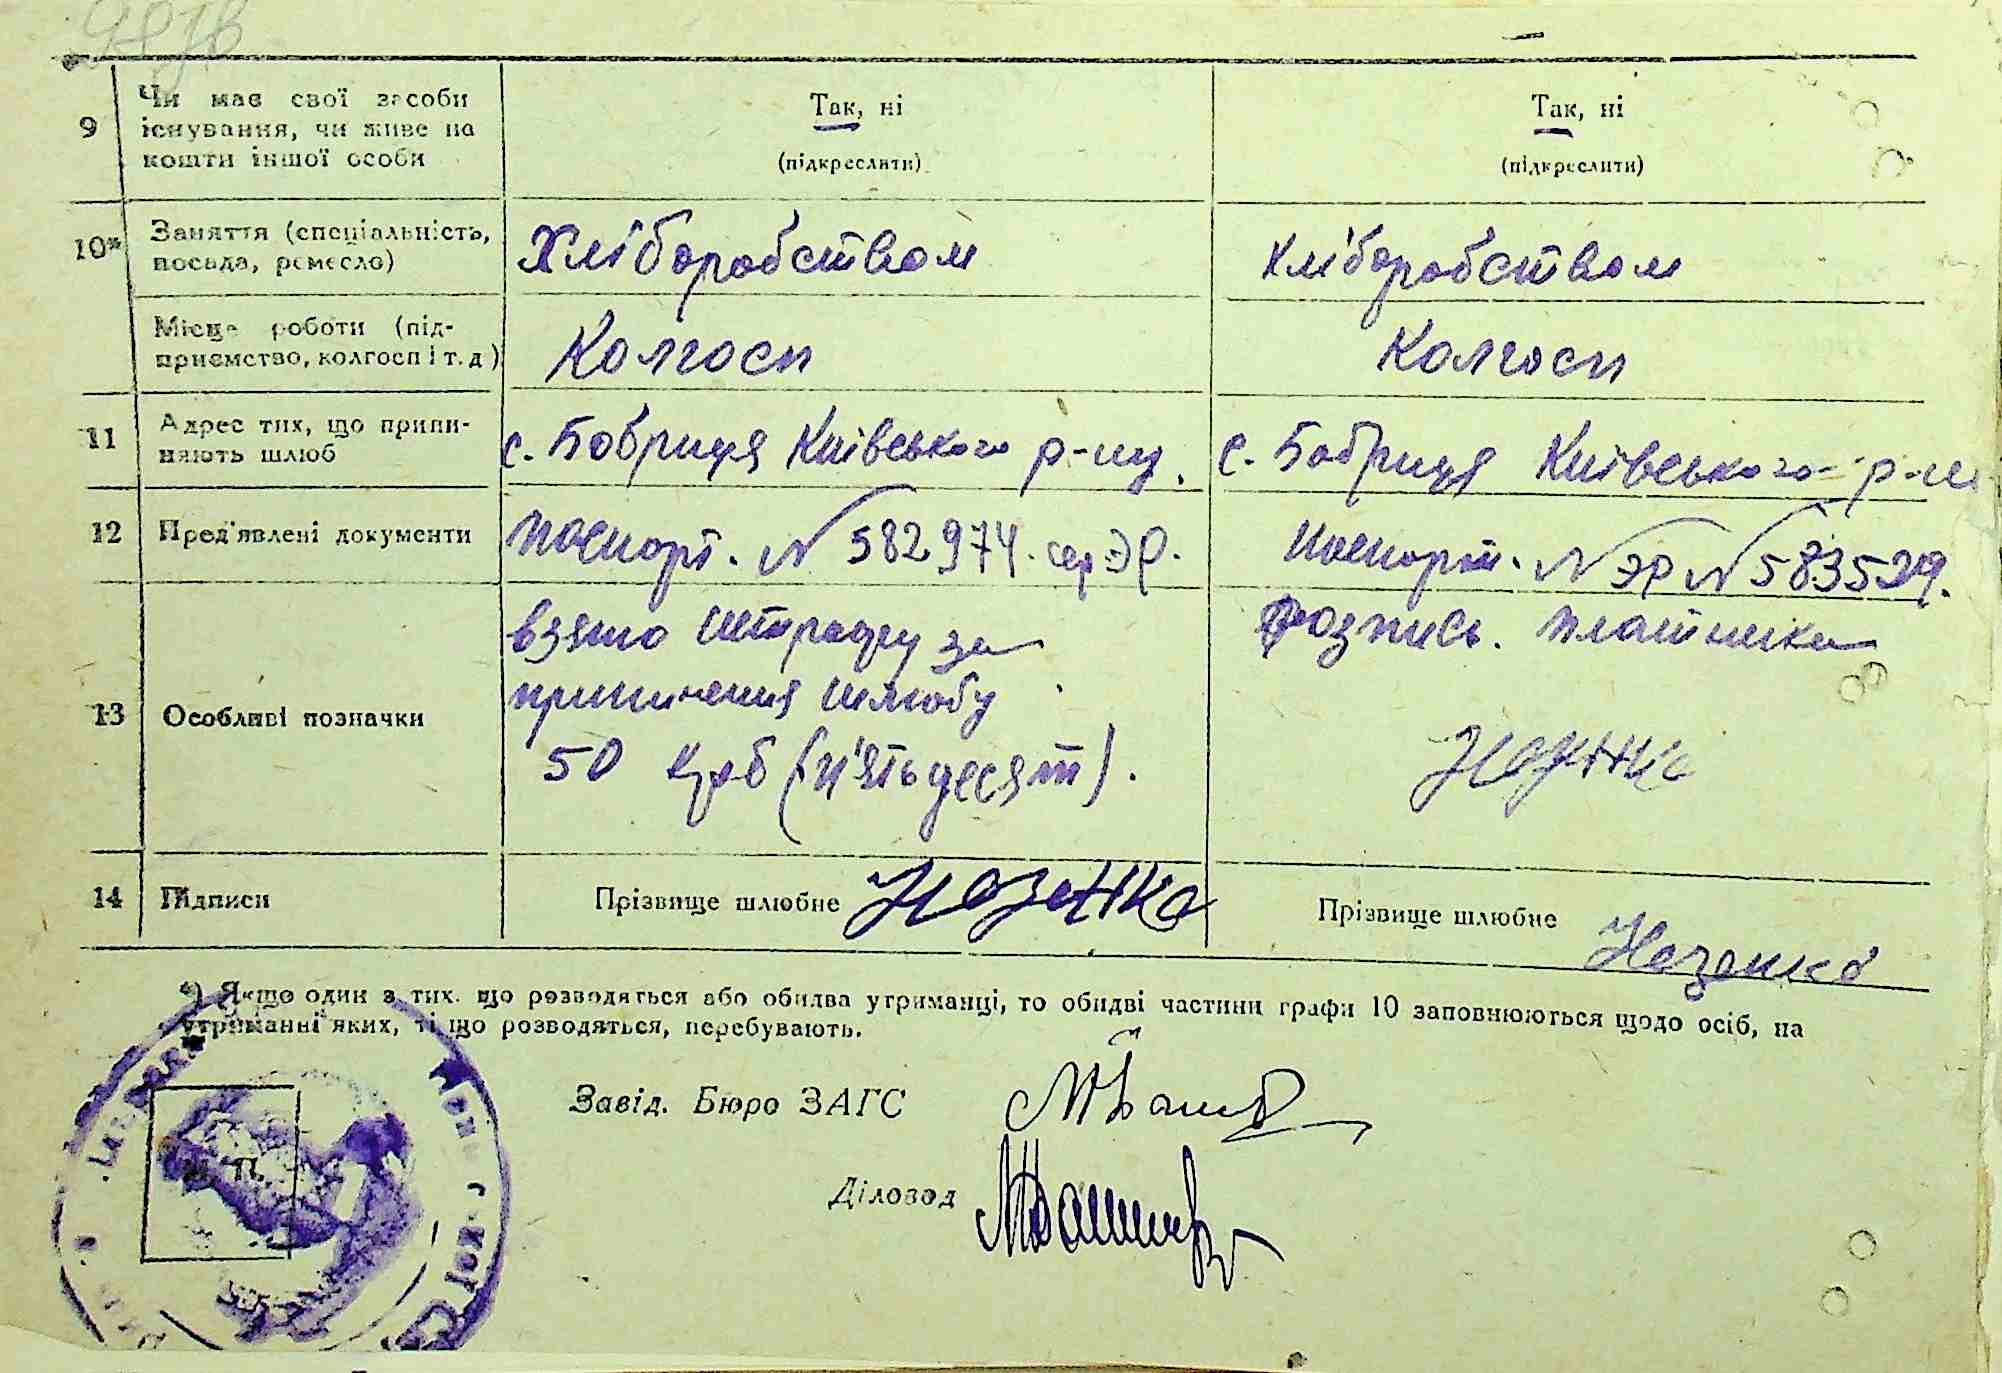 9
Чи має свої засоби
існування, чи живе на
кошти іншої особи
Так, ні
(підкреслити)
Так, ні
(підкреслити)
10*
Заняття (спеціальність,
посада, ремесло)
Хліборобством
Хліборобством
Місце роботи (під-
приємство, колгосп і т. д)
Колгосп
Колгосп
11
Адрес тих, що припи-
няють шлюб
с. Бобриця Київського р-ну.
с. Бобриця Київського р-н
12
Пред'явлені документи
Паспорт. № 582974. сер. ЭР.
Паспорт. № ЭР № 583529.
13
Особливі позначки
взято штрафу за
припинення шлюбу
50 крб (п'ятьдесят).
Розпись. платника
14
Підписи
Прізвище шлюбне Незенко
Прізвище шлюбне Незенко
*) Якщо один з тих, що розводяться або обидва утриманці, то обидві частини графи 10 заповнюються щодо осіб, на
утриманні яких, ті що розводяться, перебувають.
Завід. Бюро ЗАГС
Діловод
М. П.